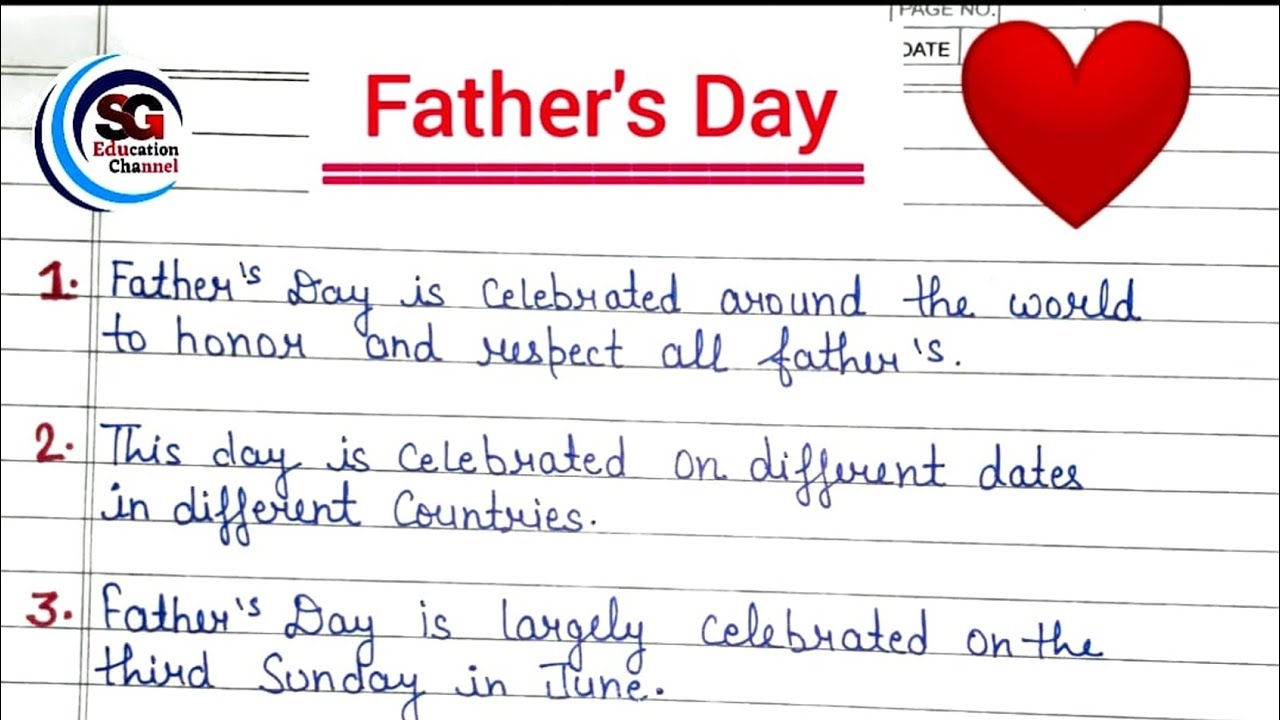 PAGE NO.
DATE
SG
Education
Channel
Father's Day
1. Father's Day is celebrated around the world
to honor and respect all father's.
2. This day is celebrated on different dates
in different Countries.
3. Father's Day is largely celebrated on the
third Sunday in June.